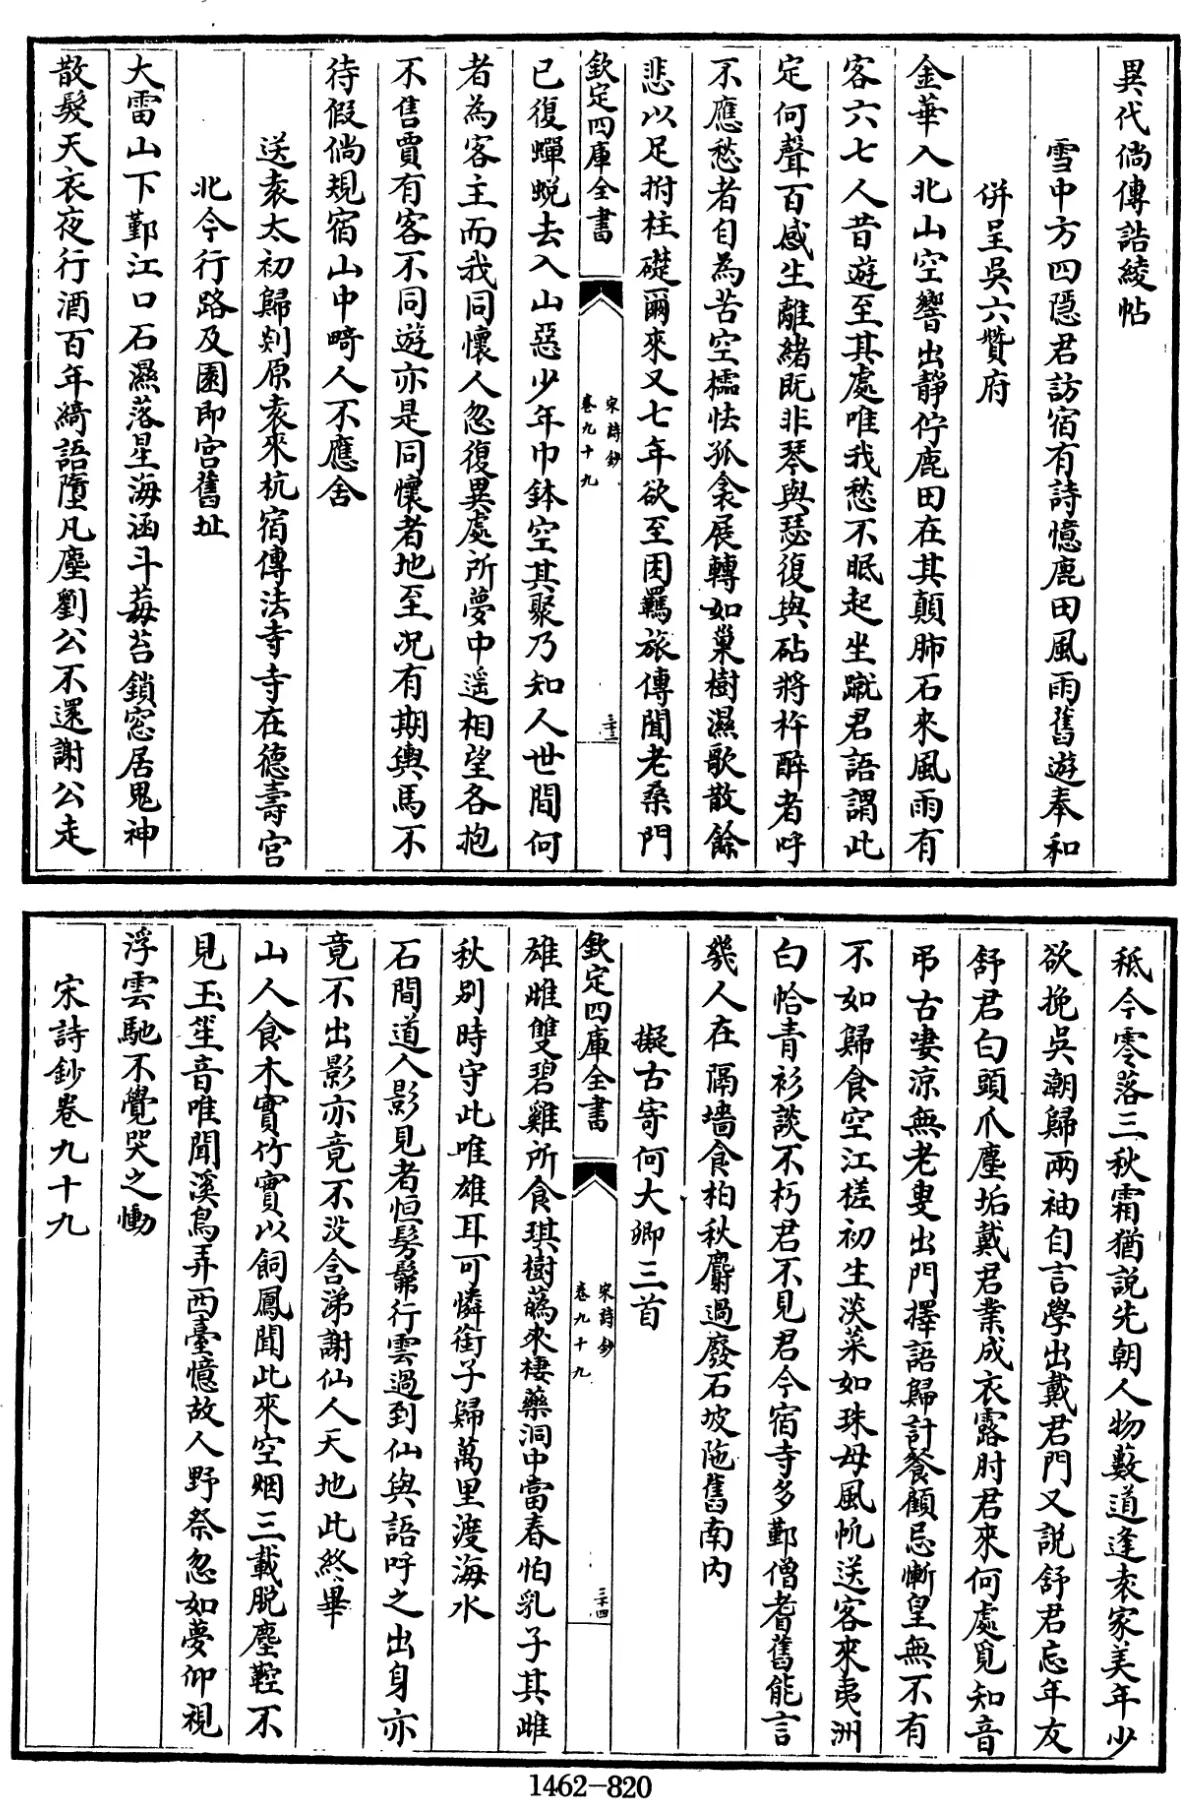 異代倘傳誥綾帖
雪中方四隱君訪宿有詩憶鹿田風雨舊遊奉和
併呈吳六贊府
金華入北山空響出靜佇鹿田在其顛肺石來風雨有
客六七人昔遊至其處唯我愁不眠起坐蹴君語謂此
定何聲百感生離緒既非琴與瑟復與砧將杵醉者呼
不應愁者自為苦空檽怯孤衾展轉如巢樹濕歌散餘
悲以足拊柱礎爾來又七年欲至困羈旅傳聞老桑門
欽定四庫全書
宋詩鈔
卷九十九
三十三
已復蟬蛻去入山惡少年巾鉢空其聚乃知人世間何
者為客主而我同懷人忽復異處所夢中遥相望各抱
不售賈有客不同遊亦是同懷者地至况有期輿馬不
待假倘規宿山中畸人不應舍
送袁太初歸剡原袁來杭宿傳法寺寺在德壽宮
北今行路及園即宮舊址
大雷山下鄞江口石濕落星海涵斗莓苔鎖窓居鬼神
散髮天衣夜行酒百年綺語墮凡塵劉公不還謝公走
秪今零落三秋霜猶說先朝人物藪道逢袁家美年少
欲挽吳潮歸兩袖自言學出戴君門又說舒君忘年友
舒君白頭爪塵垢戴君業成衣露肘君來何處覓知音
弔古淒涼無老叟出門擇語歸計餐顧忌慚皇無不有
不如歸食空江槎初生淡菜如珠母風帆送客來夷洲
白恰青衫談不朽君不見君今宿寺多鄞僧耆舊能言
幾人在隔墻食柏秋麝過廢石坡陁舊南内
擬古寄何大卿三首
欽定四庫全書
宋詩鈔
卷九十九
三十四
雄雌雙碧雞所食琪樹蘤來棲藥洞中當春怕乳子其雌
秋别時守此唯雄耳可憐銜子歸萬里渡海水
石間道人影見者恒髣髴行雲過到仙與語呼之出身亦
竟不出影亦竟不没含涕謝仙人天地此終畢
山人食木實竹實以飼鳳聞此來空烟三載脱塵鞚不
見玉笙音唯聞溪鳥弄西臺憶故人野祭忽如夢仰視
浮雲馳不覺哭之慟
宋詩鈔卷九十九
1462-820